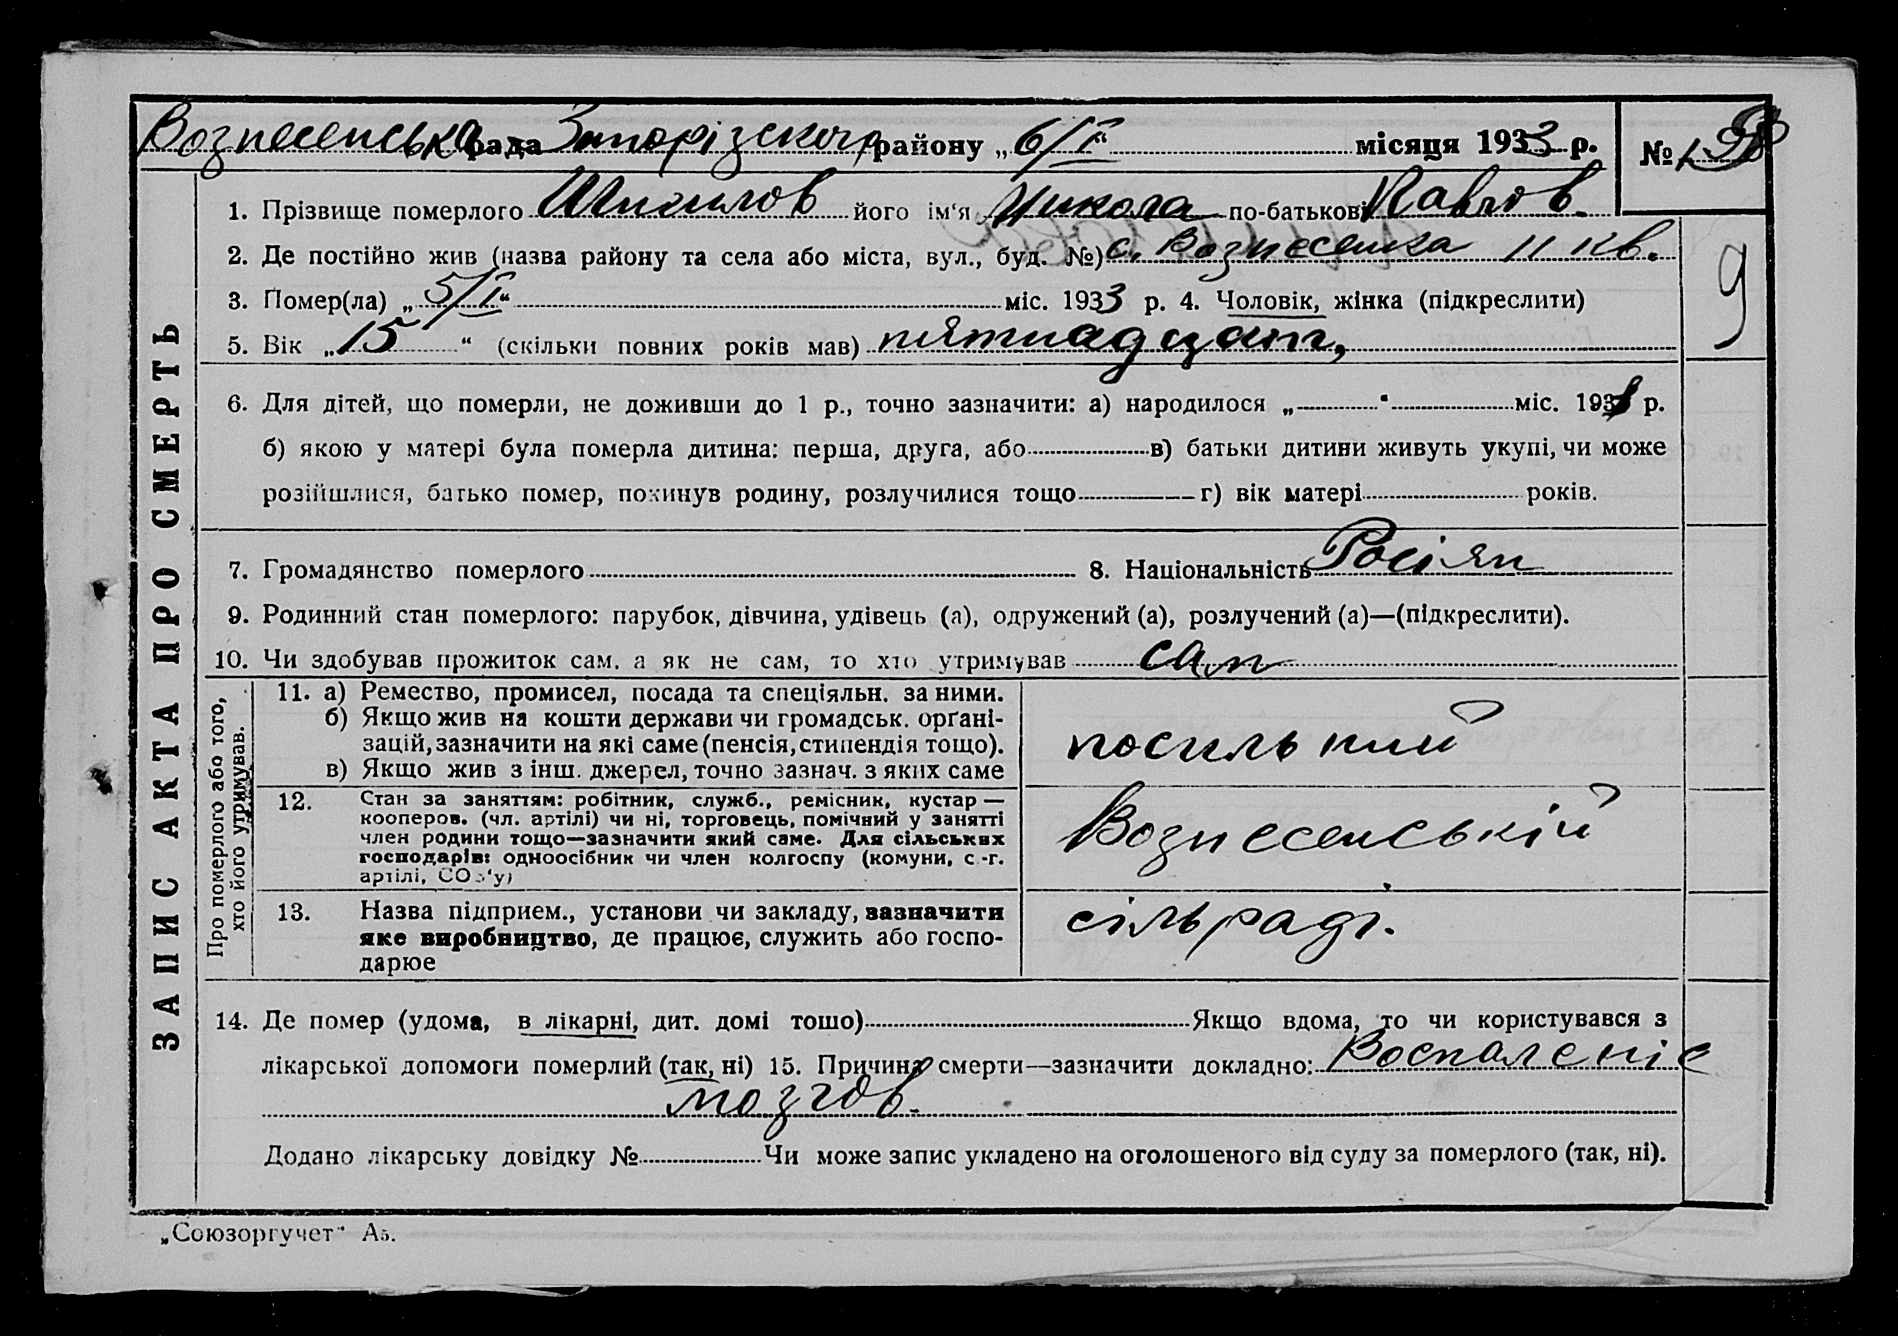 Вознесенська рада Запорізского району „6/I“ місяця 1933 р. №
1. Прізвище померлого Шпилов його ім‘я Микола по-батькові Павлов.
2. Де постійно жив (назва району та села або міста, вул., буд. №) с. Вознесенка 11 кв.
3. Помер(ла) „5/I“ міс. 1933 р. 4. Чоловік, жінка (підкреслити)
9
5. Вік „15“ (скільки повних років мав) пятнадцать,
6. Для дітей, що померли, не доживши до 1 р., точно зазначити: а) народилося „ “ міс. 193 р.
б) якою у матері була померла дитина: перша, друга, або в) батьки дитини живуть укупі, чи може
розійшлися, батько помер, покинув родину, розлучилися тощо г) вік матері років.
7. Громадянство померлого 8. Національність Росіян
9. Родинний стан померлого: парубок, дівчина, удівець (а), одружений (а), розлучений (а)—(підкреслити).
10. Чи здобував прожиток сам, а як не сам, то хто утримував сам
ЗАПИС АКТА ПРО СМЕРТЬ
Про померлого або того,
хто його утримував.
11. а) Ремество, промисел, посада та спеціяльн. за ними.
б) Якщо жив на кошти держави чи громадськ. орґані-
зацій, зазначити на які саме (пенсія, стипендія тощо).
в) Якщо жив з інш. джерел, точно зазнач. з яких саме
посильний
12. Стан за заняттям: робітник, служб., ремісник, кустар —
кооперов. (чл. артілі) чи ні, торговець, помічний у занятті
член родини тощо—зазначити який саме. Для сільських
господарів: одноосібник чи член колгоспу (комуни, с.-г.
артілі, СОЗ‘у)
Вознесенській
13. Назва підприєм., установи чи закладу, зазначити
яке виробництво, де працює, служить або госпо-
дарює
сільраді.
14. Де помер (удома, в лікарні, дит. домі тошо) Якщо вдома, то чи користувався з
лікарської допомоги померлий (так, ні) 15. Причина смерти—зазначити докладно: Воспаленіе
мозгов.
Додано лікарську довідку № Чи може запис укладено на оголошеного від суду за померлого (так, ні).
„Союзоргучет“ А5.